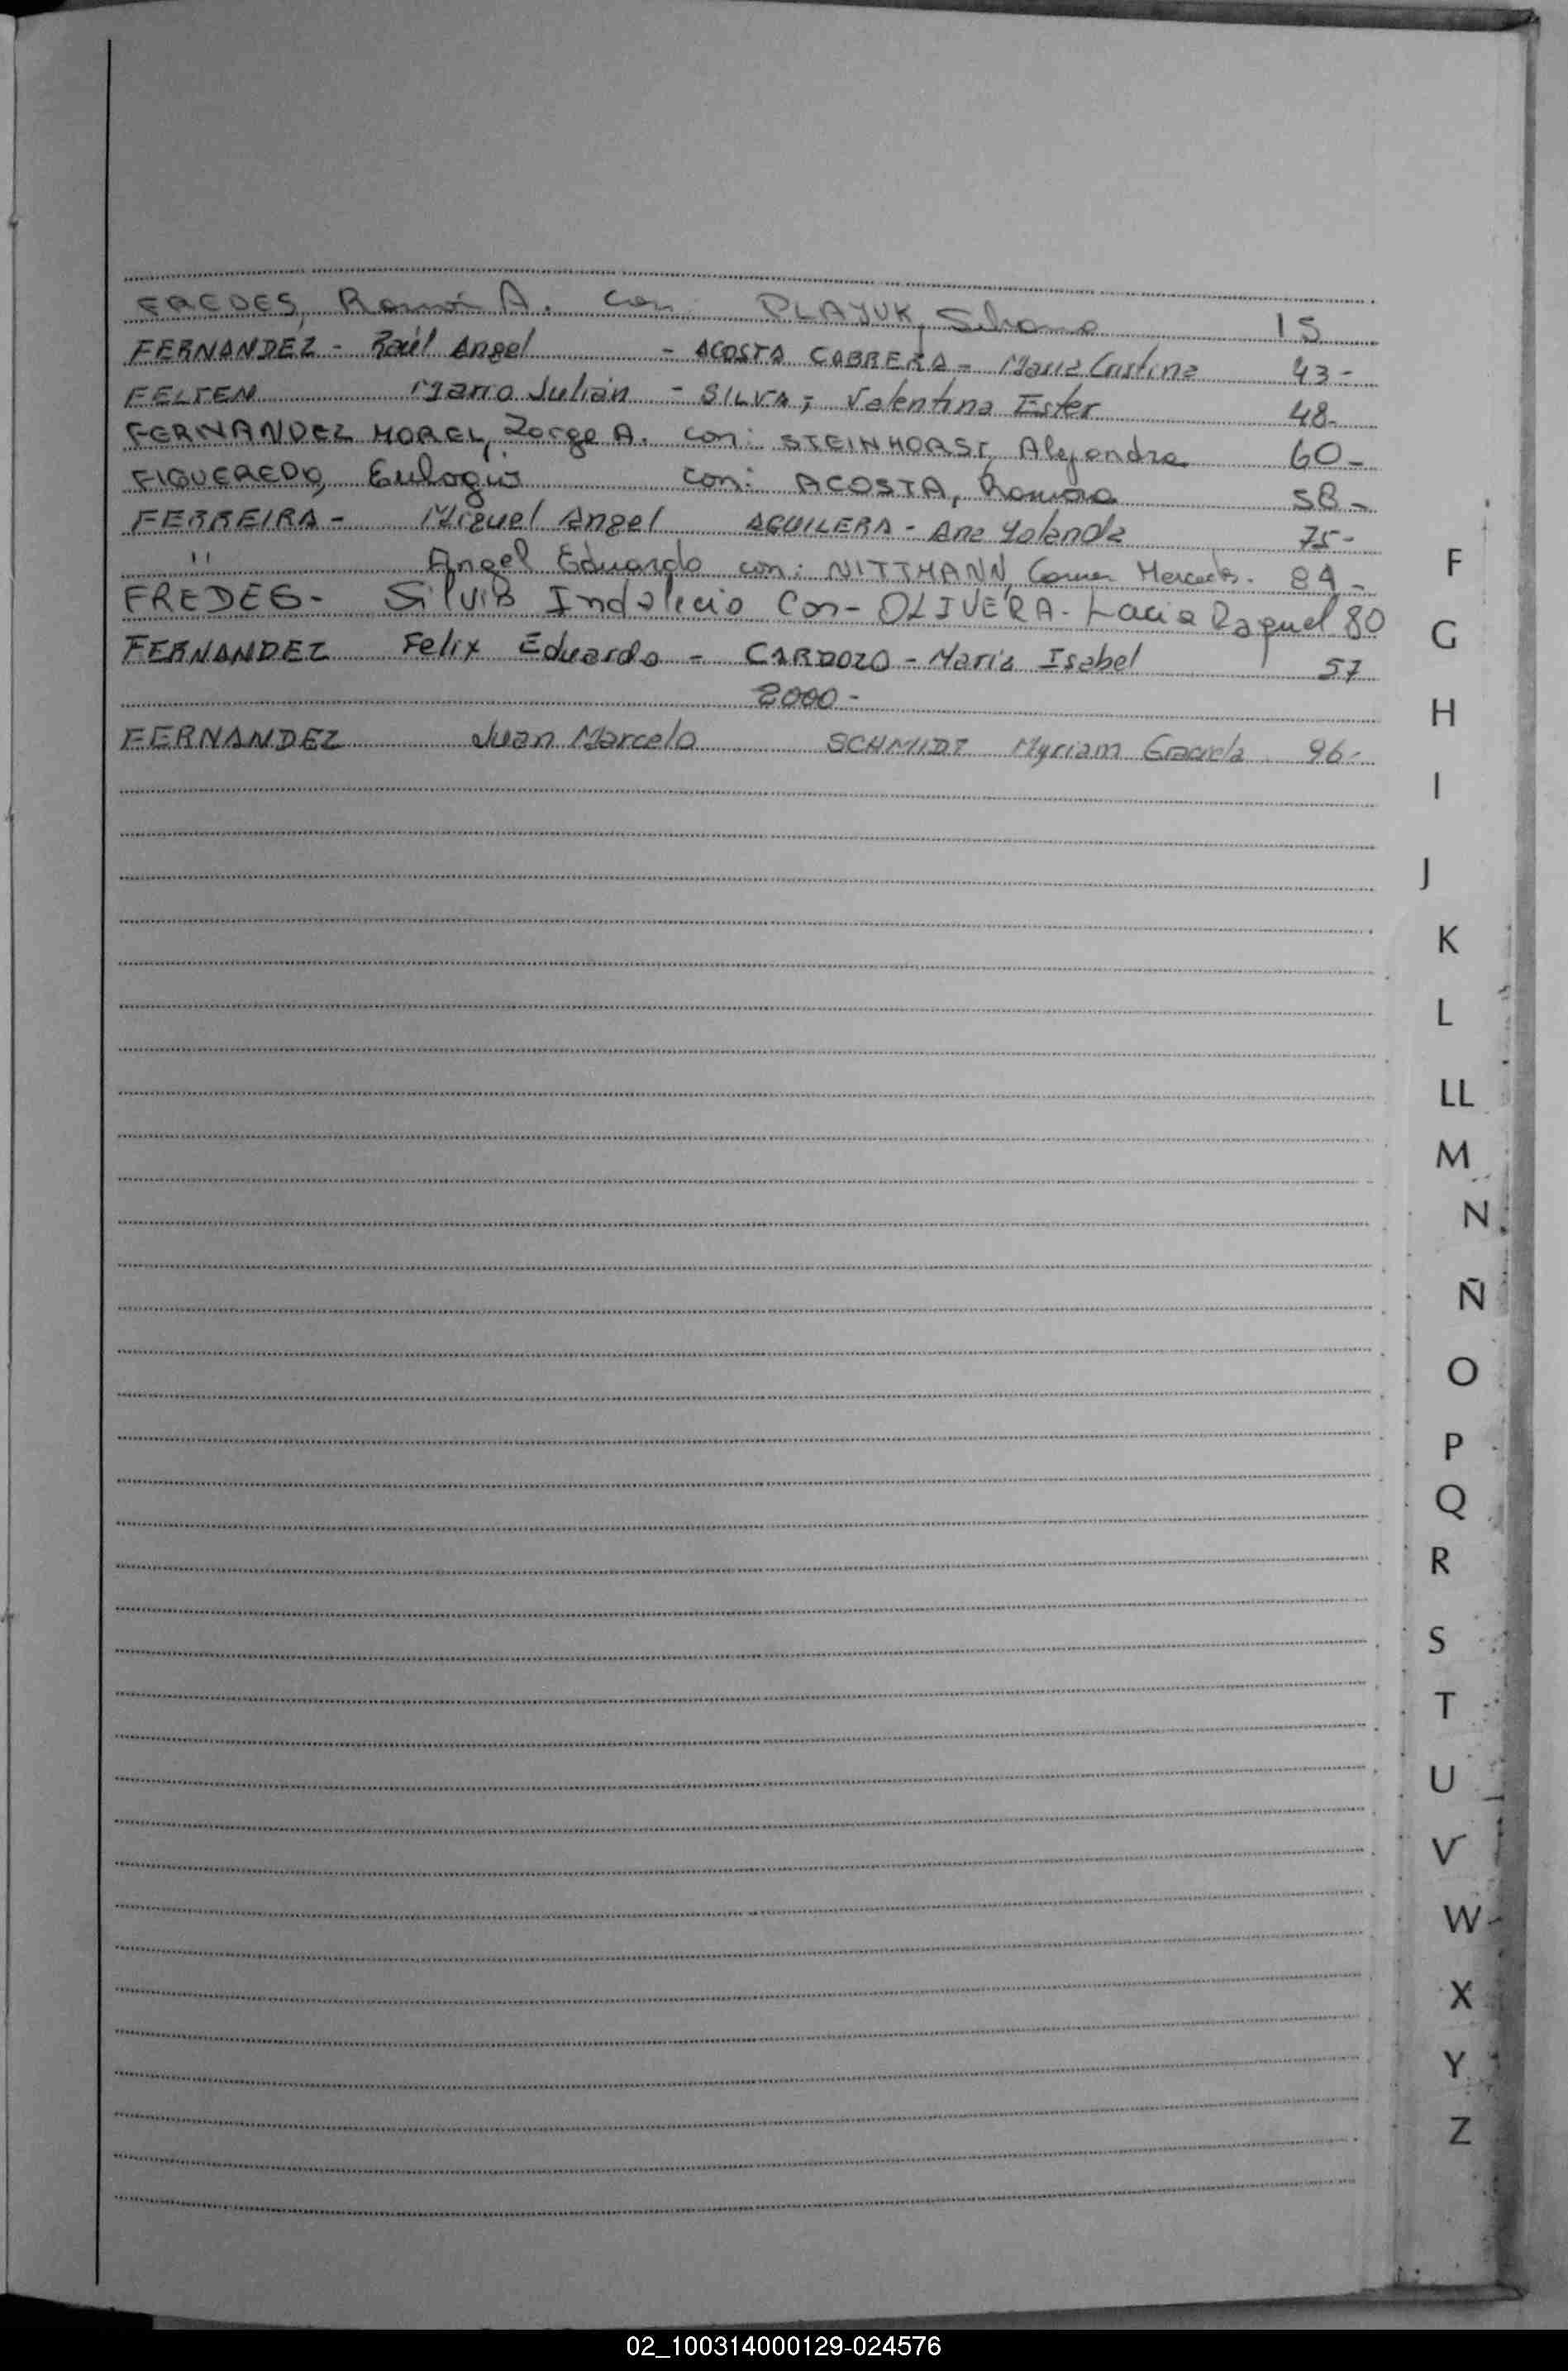 FREDES, Ramón A. con: PLAYUK, Silvana 15
FERNANDEZ - Raúl Angel - ACOSTA CABRERA - María Cristina 43-
FELTEN Mario Julián - SILVA; Valentina Ester 48-
FERNANDEZ MOREL, Jorge A. con: STEINHORST, Alejandra 60-
FIGUEREDO, Eulogio con: ACOSTA, Ramona 58-
FERREIRA - Miguel Angel AGUILERA - Ana Yolanda 75-
" Angel Eduardo con: NITTMANN, Mercedes. 84-
FREDES - Indalecio Con- OLIVERA - Raquel 80
FERNANDEZ Felix Eduardo - CARDOZO - María Isabel 57
2000-
FERNANDEZ Juan Marcelo SCHMIDT Myriam Graciela 96-
F
G
H
I
J
K
L
LL
M
N
Ñ
O
P
Q
R
S
T
U
V
W
X
Y
Z
02_100314000129-024576